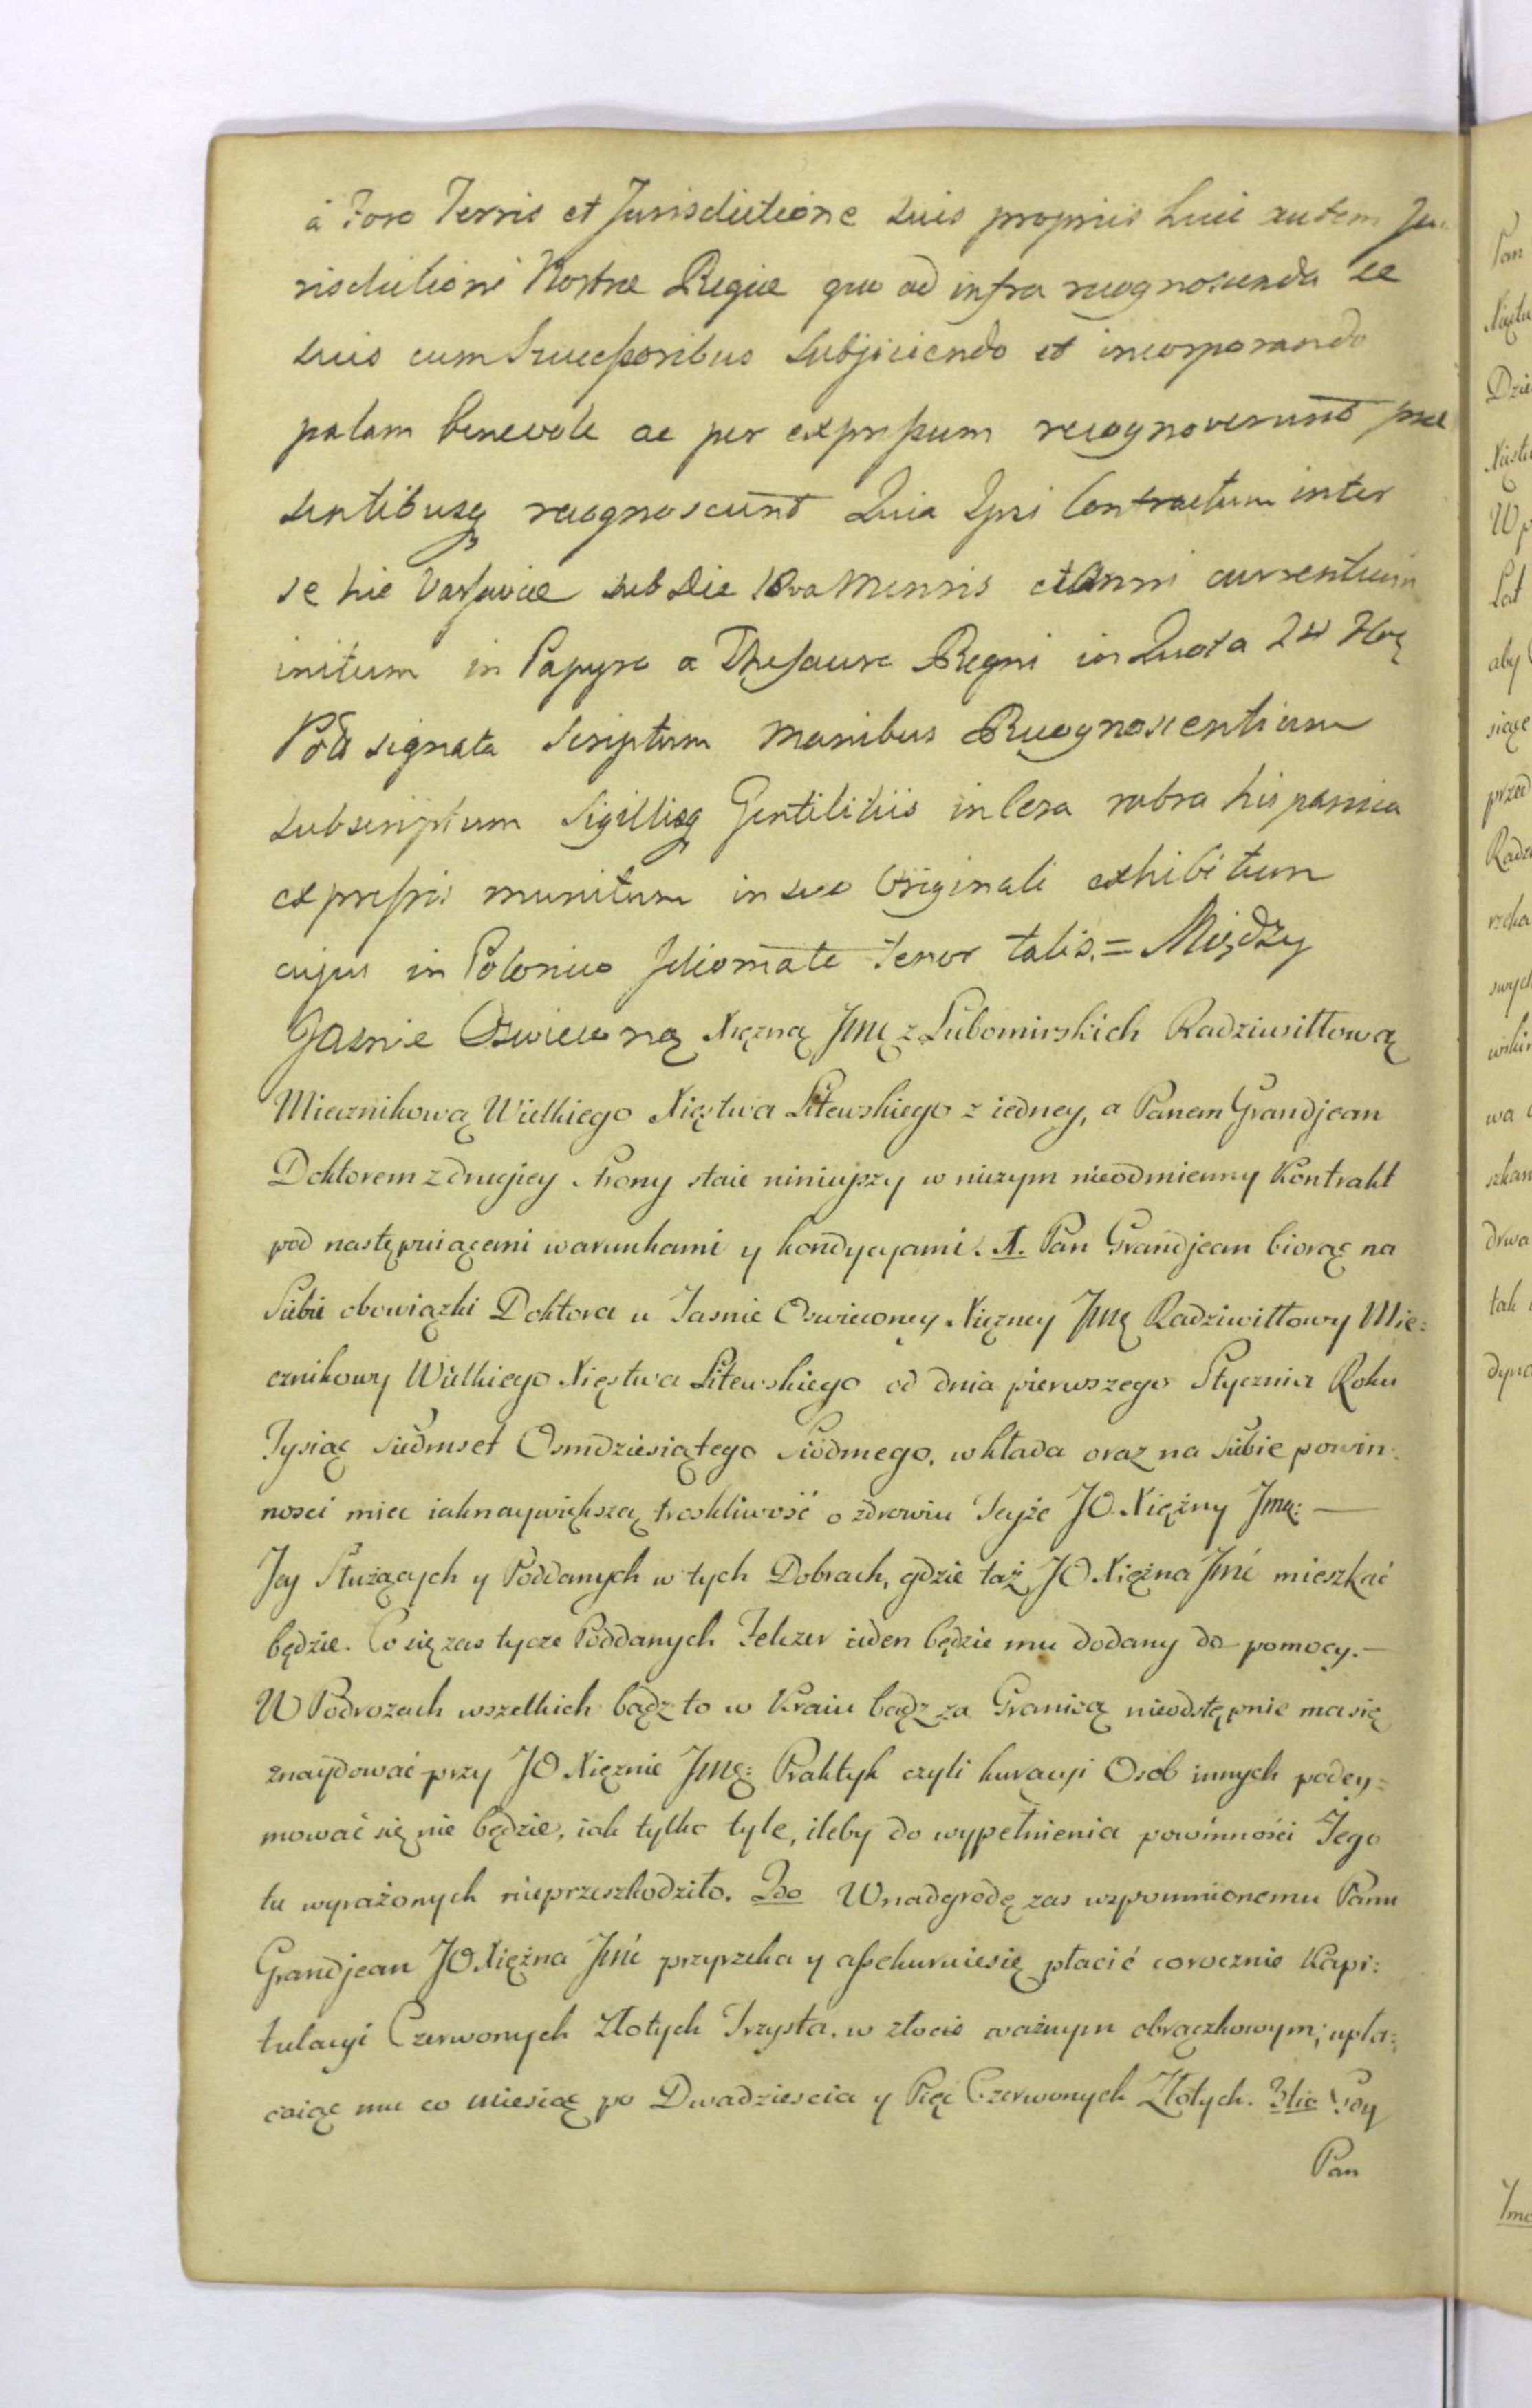 à Foro Terris et Jurisdictione suis propriis huic autem Ju-
risdictioni Nostræ Regiæ quo ad infra recognoscenda se
suis cum Successoribus subjiciendo et incorporando
palam benevole ac per expressum recognoverunt præ
sentibusq recognoscunt Quia Ipsi Contractum inter
se hic Varsaviæ sub Die 18va Mensis et Anni currentium
initum in Papyro a Thesauro Regni in Quota 24
signata Scriptum Manibus Recognoscentium
subscriptum Sigillisq Gentilitiis in Cera rubra hispanica
expressis munitum in suo Originali exhibitum
cujus in Polonico Idiomate tenor talis. = Między
Jasnie Oswieconą Xiężną Jmę z Lubomirskich Radziwiłłową
Miecznikową Wielkiego Xięstwa Litewskiego z iedney, a Panem Grandjean
Doktorem z drugiey strony staie ninieyszy w niczym nieodmienny Kontrakt
pod następuiącemi warunkami y kondycyami. 1. Pan Grandjean biorąc na
Siebie obowiązki Doktora u Jasnie Oswieconey Xiężney Jmę Radziwiłłowy Mie=
cznikowy Wielkiego Xięstwa Litewskiego od dnia pierwszego Stycznia Roku
Tysiąc siedmset Osmdziesiątego siódmego, wkłada oraz na siebie powin=
nosci miec iaknaywiększą troskliwość o zdrowiu Teyże JO. Xiężny Jmę: —
Jey Służących y Poddanych w tych Dobrach, gdzie taż JO Xiężna Jmć mieszkać
będzie. Co się zas tycze Poddanych Felczer ieden będzie mu dodany do pomocy. —
W Podrożach wszelkich bądz to w Kraiu bądz za Granicą nieodstępnie ma się
znaydować przy JO Xiężnie Jmę: Praktyk czyli kuracyi Osób innych podey=
mować się nie będzie, iak tylko tyle, ileby do wypełnienia powinności Jego
tu wyrażonych nieprzeszkodziło. 2do W nadgrodę zas wspomnionemu Panu
Grandjean JO Xiężna Jmć przyrzeka y assekuruie się płacić corocznie Kapi=
tulacyi Czerwonych Złotych Trzysta. w złocie ważnym obrączkowym; wpła=
caiąc mu co miesiąc po Dwadziescia y Pięć Czerwonych Złotych. 3tio Gdy
Pan